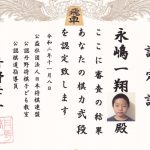 認定証
永嶋一翔殿
ここに審査の結果
あなたの棋力弐段
を認定致します
令和二年十一月八日
公益社団法人日本将棋連盟
公認丹野将棋子ども教室
公認棋道指導員